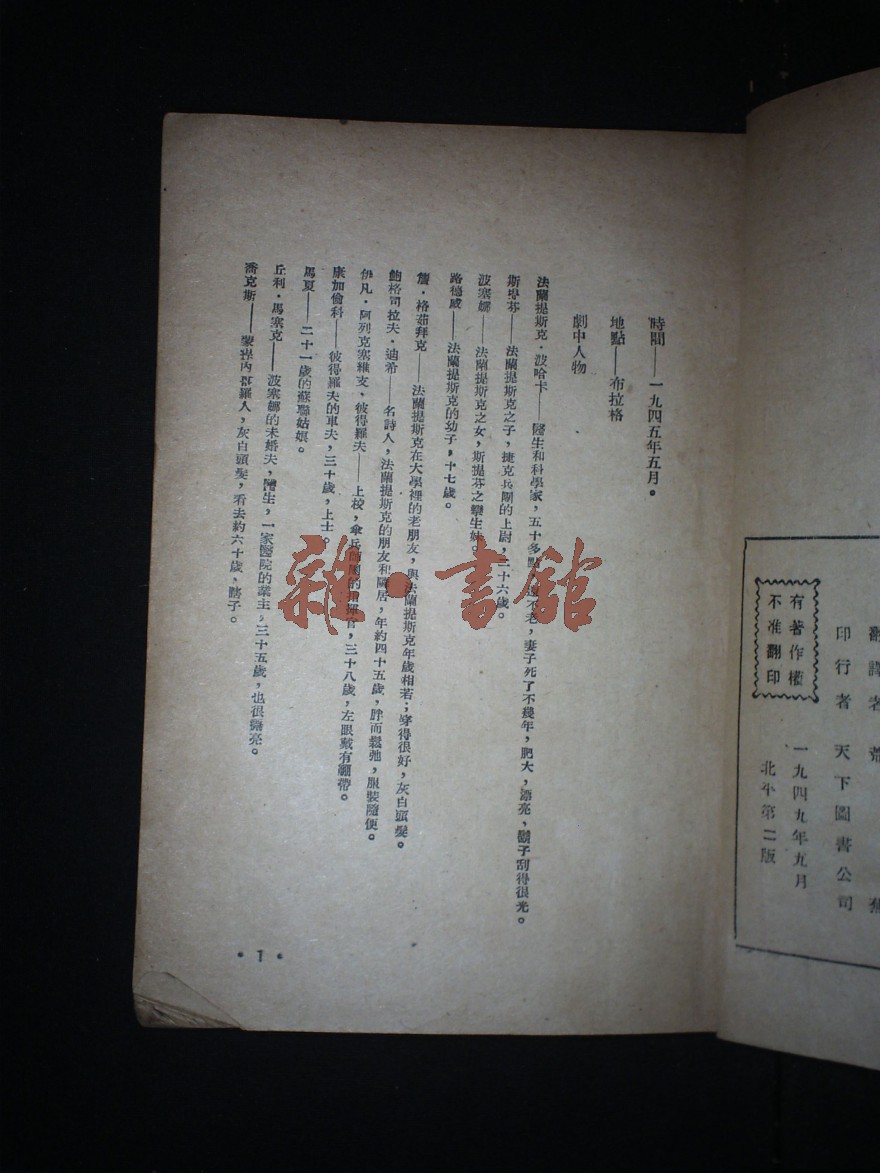 有著作權
不准翻印
翻譯者
印行者 天下圖書公司
一九四九年九月
北平第二版
時間——一九四五年五月。
地點——布拉格
劇中人物
法蘭提斯克·波哈卡——醫生和科學家，五十多點，還不老，妻子死了不幾年，肥大，漂亮，鬍子刮得很光。
斯提芬——法蘭提斯克之子，捷克兵團的上尉，二十六歲。
波塞娜——法蘭提斯克之女，斯提芬之孿生妹。
路德威——法蘭提斯克的幼子，十七歲。
詹·格茹拜克——法蘭提斯克在大學裡的老朋友，與法蘭提斯克年歲相若；穿得很好，灰白頭髮。
鮑格司拉夫·迪希——名詩人，法蘭提斯克的朋友和鄰居，年約四十五歲，胖而鬆弛，服裝隨便。
伊凡·阿列克塞維支、彼得羅夫——上校，傘兵師團的指揮官，三十八歲，左眼戴有繃帶。
康加倫科——彼得羅夫的車夫，三十歲，上士。
馬夏——二十一歲的蘇聯姑娘。
丘利·馬塞克——波塞娜的未婚夫，醫生，一家醫院的業主，三十五歲，也很漂亮。
潘克斯——蒙得內哥羅人，灰白頭髮，看去約六十歲，瞎子。
·1·
雜·書館